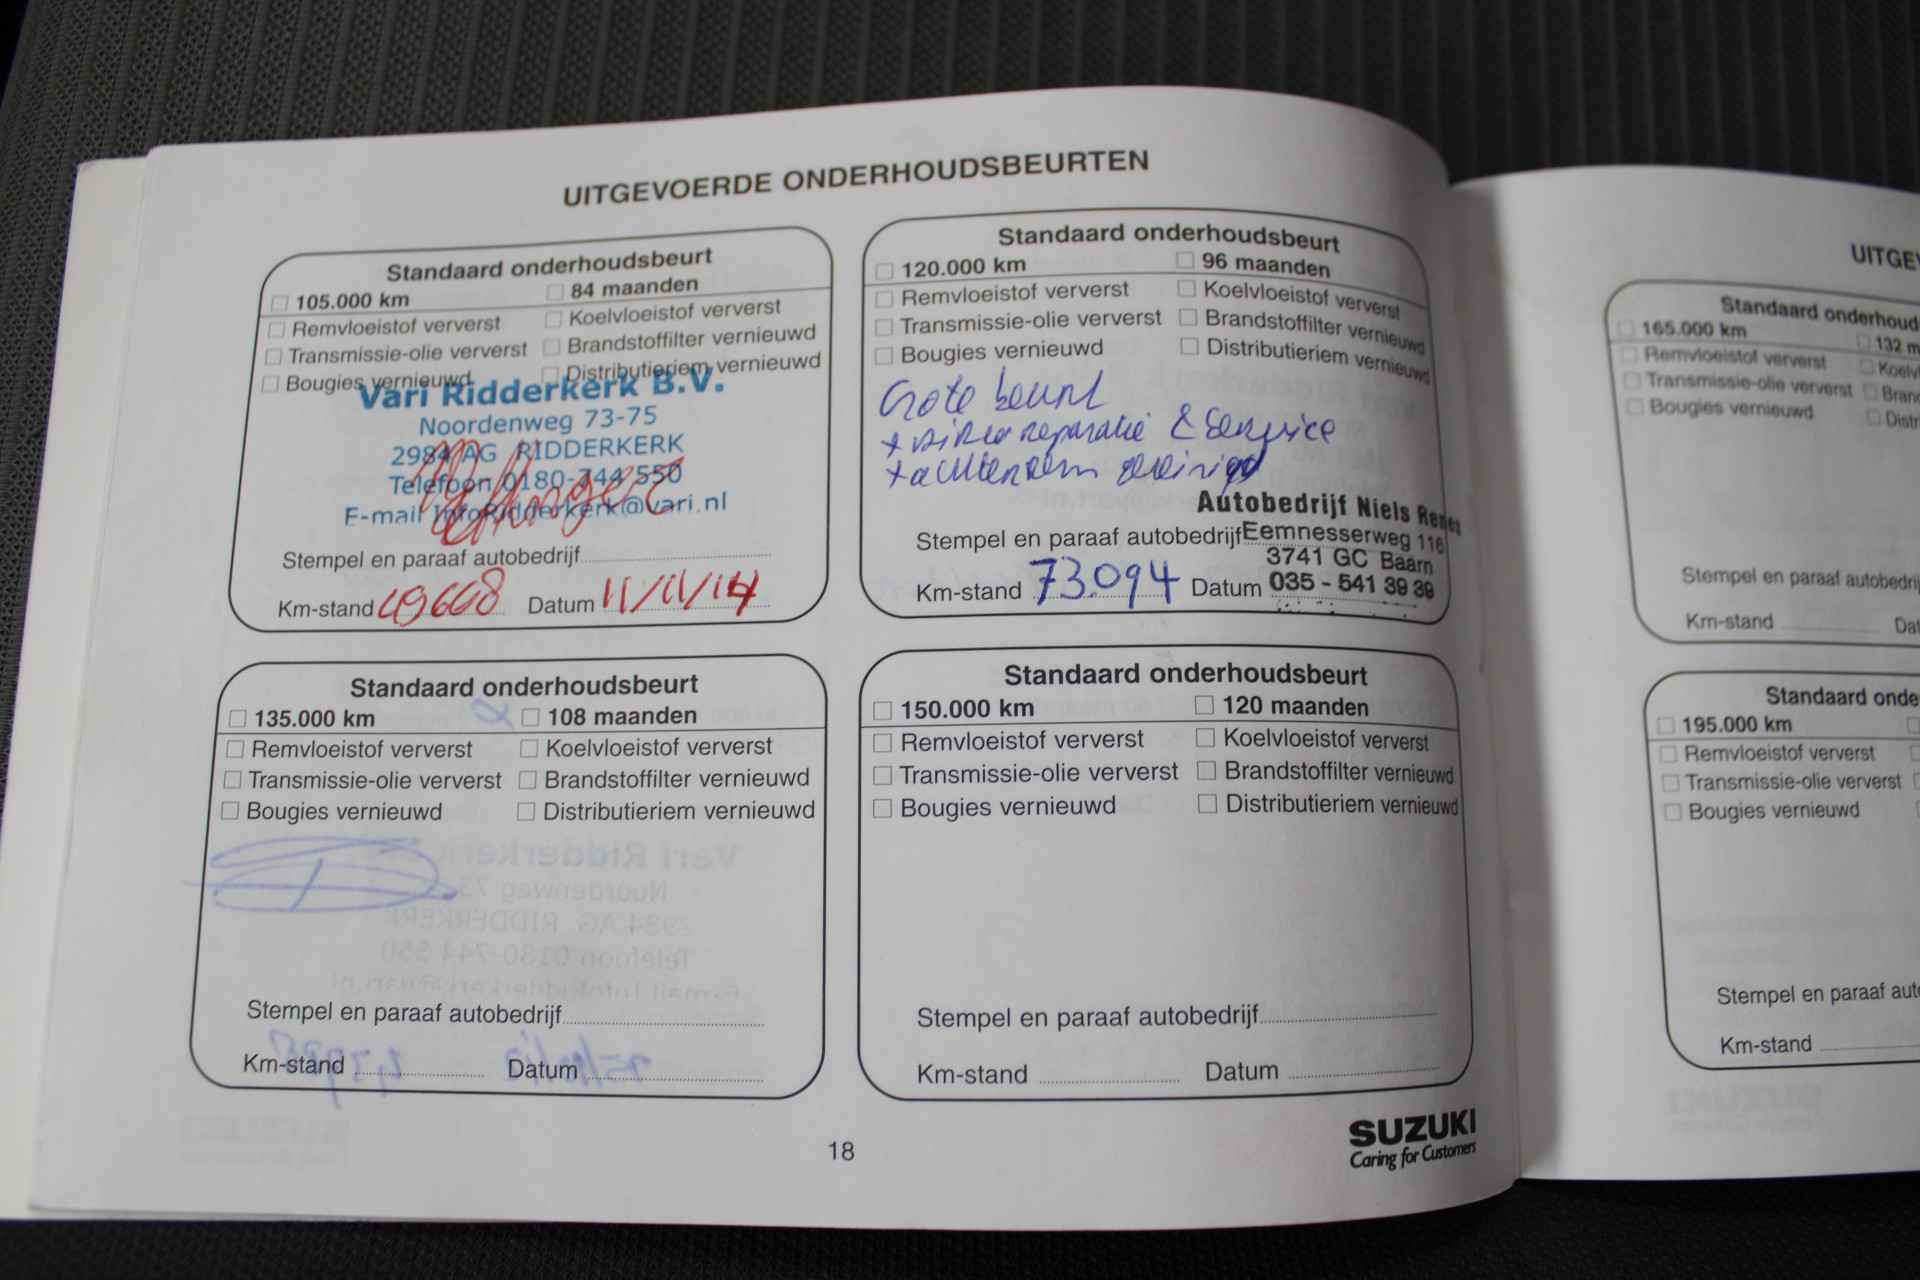 UITGEVOERDE ONDERHOUDSBEURTEN
Standaard onderhoudsbeurt
105.000 km 84 maanden
Remvloeistof ververst Koelvloeistof ververst
Transmissie-olie ververst Brandstoffilter vernieuwd
Bougies vernieuwd Distributieriem vernieuwd
Vari Ridderkerk B.V.
Noordenweg 73-75
2984 AG RIDDERKERK
Telefoon 0180-744 550
E-mail InfoRidderkerk@vari.nl
Stempel en paraaf autobedrijf
Km-stand 49668 Datum 11/11/14
Standaard onderhoudsbeurt
120.000 km 96 maanden
Remvloeistof ververst Koelvloeistof ververst
Transmissie-olie ververst Brandstoffilter vernieuwd
Bougies vernieuwd Distributieriem vernieuwd
Grote beurt
+ airco reparatie & service
+ achterrem gereinigd
Autobedrijf Niels
Stempel en paraaf autobedrijf Eemnesserweg 116
3741 GC Baarn
Km-stand 73.094 Datum 035 - 541 39 39
Standaard onderhoudsbeurt
135.000 km 108 maanden
Remvloeistof ververst Koelvloeistof ververst
Transmissie-olie ververst Brandstoffilter vernieuwd
Bougies vernieuwd Distributieriem vernieuwd
Stempel en paraaf autobedrijf
Km-stand Datum
Standaard onderhoudsbeurt
150.000 km 120 maanden
Remvloeistof ververst Koelvloeistof ververst
Transmissie-olie ververst Brandstoffilter vernieuwd
Bougies vernieuwd Distributieriem vernieuwd
Stempel en paraaf autobedrijf
Km-stand Datum
18
SUZUKI
Caring for Customers
UITGEV
Standaard onderhoud
165.000 km 132 m
Remvloeistof ververst Koelv
Transmissie-olie ververst Bran
Bougies vernieuwd Distr
Stempel en paraaf autobedrij
Km-stand Dat
Standaard onde
195.000 km
Remvloeistof ververst
Transmissie-olie ververst
Bougies vernieuwd
Stempel en paraaf aut
Km-stand